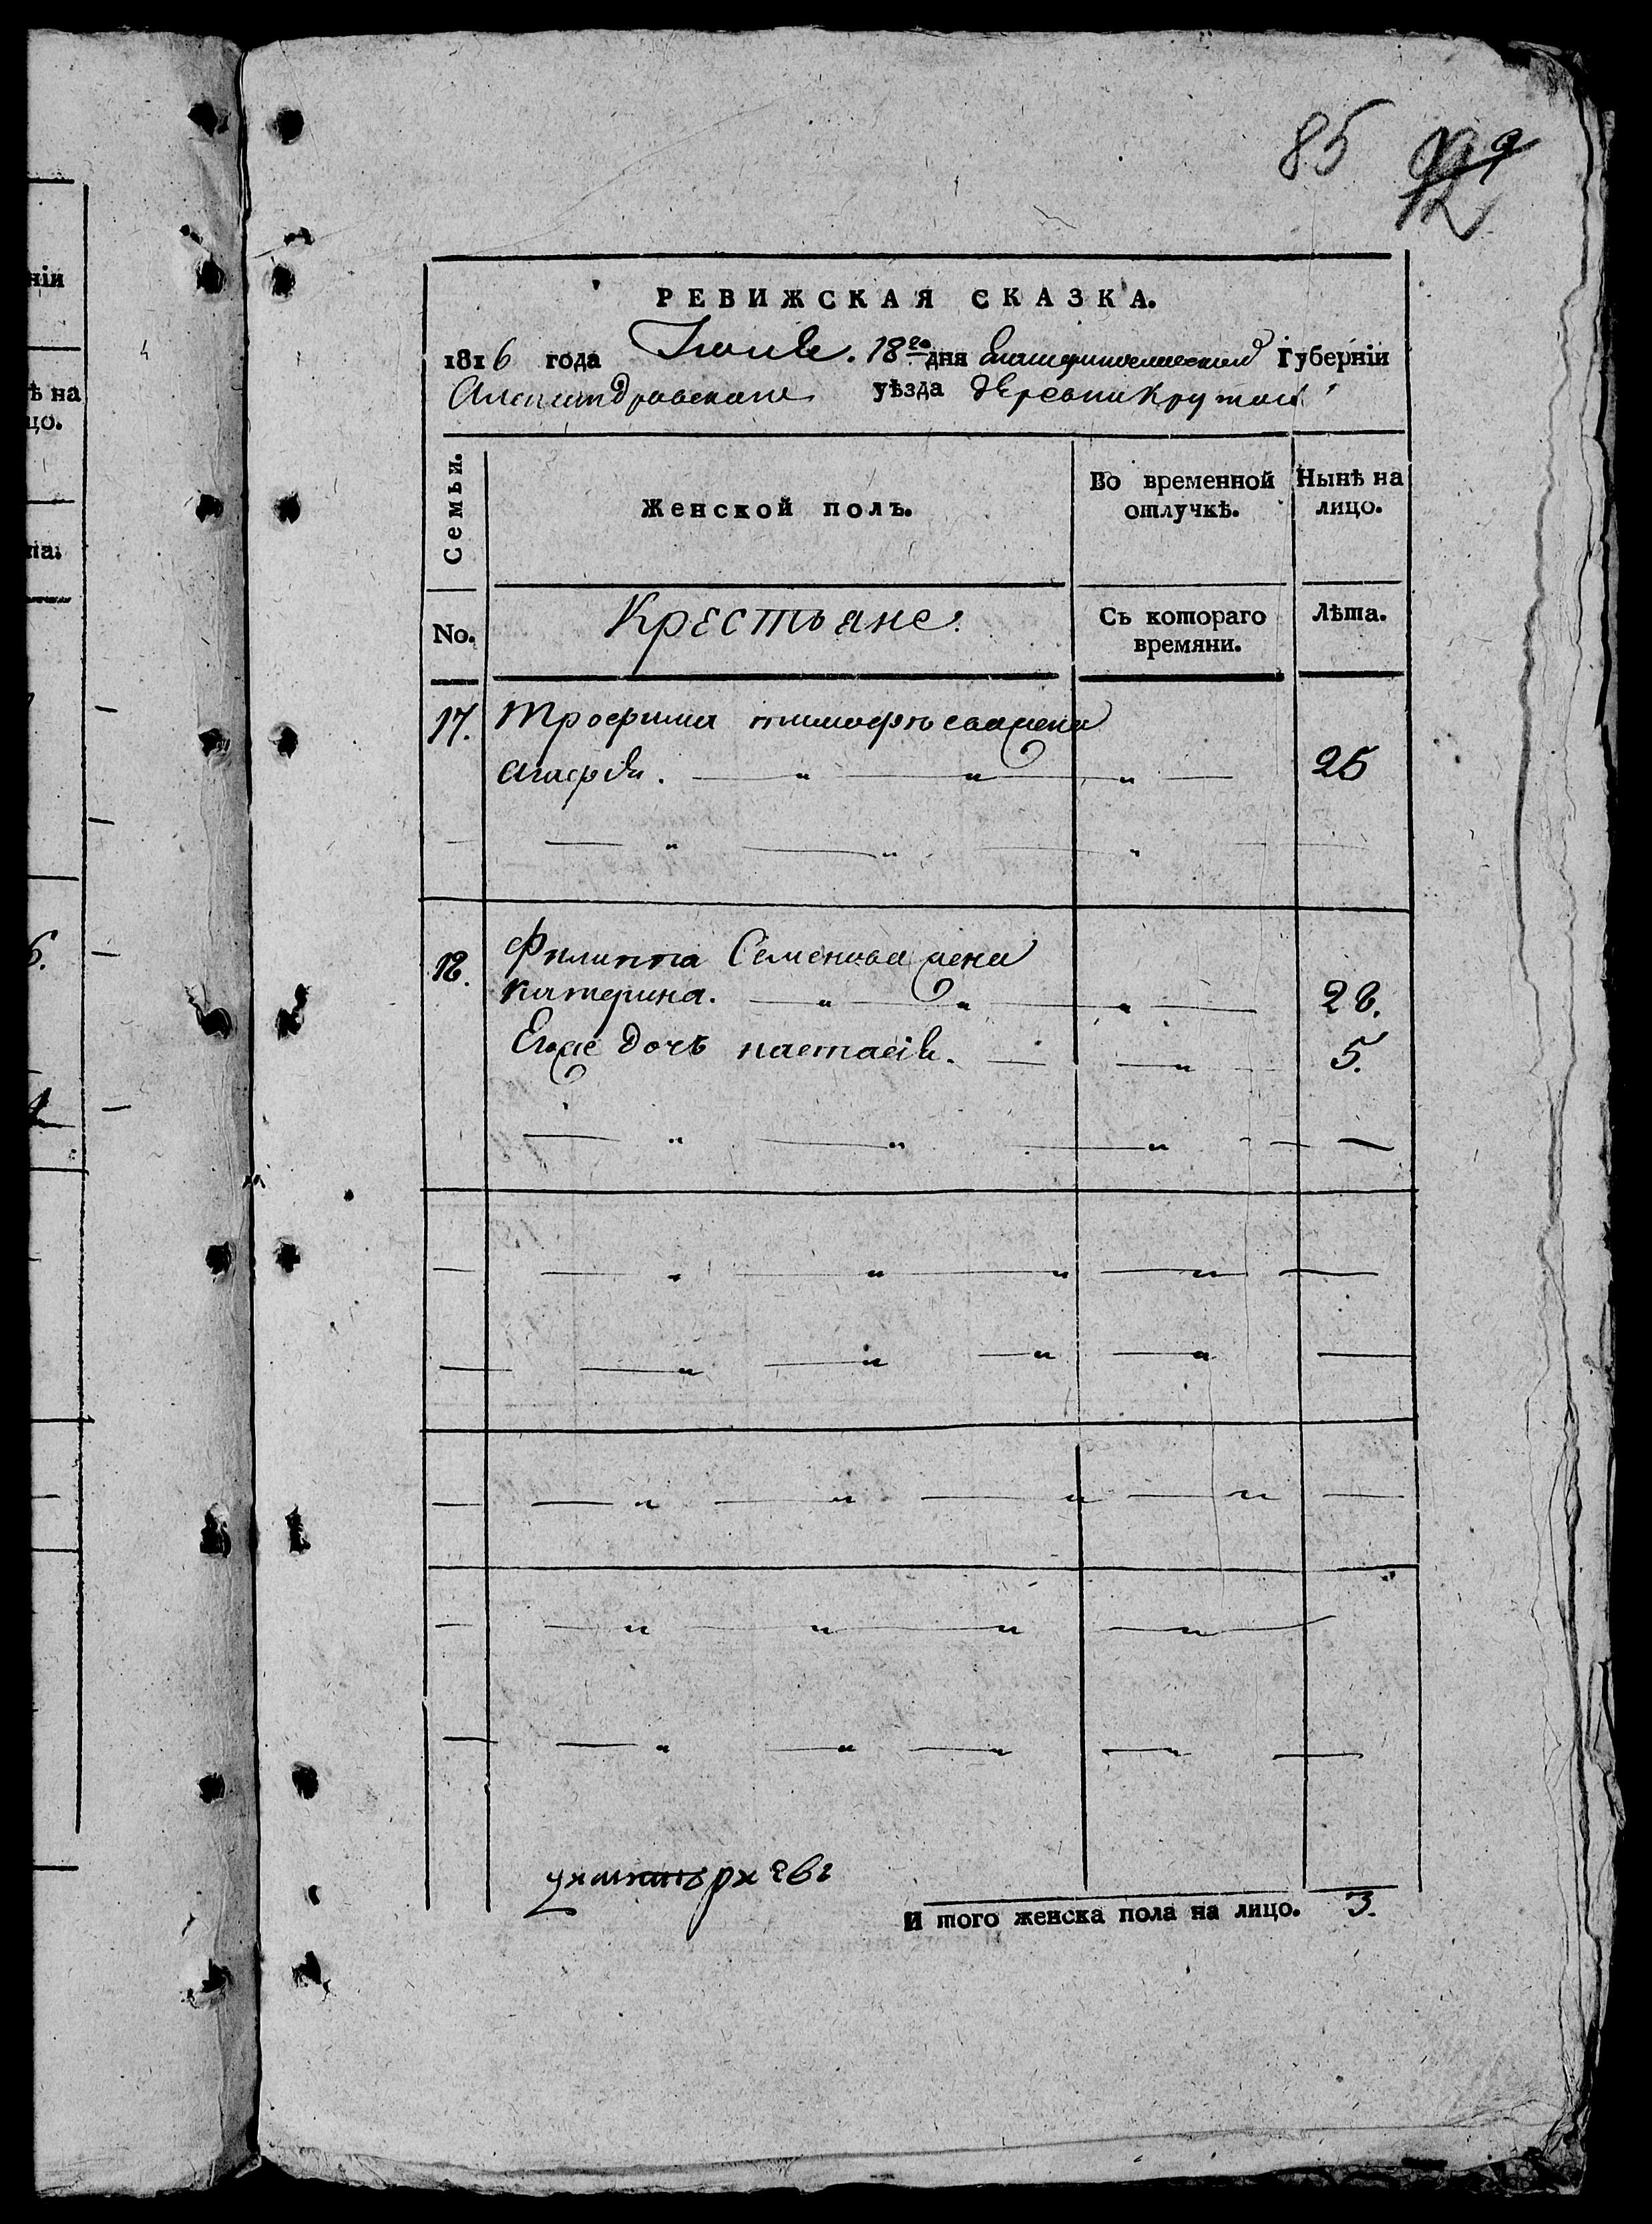 85
92
РЕВИЖСКАЯ СКАЗКА.
1816 года Іюня. 18го дня Екатеринославской Губерніи
Александровскаго уѣзда деревни Крутой
Семьи.
Женской полъ.
Во временной отлучкѣ.
Нынѣ на лицо.
No.
Крестьяне.
Съ котораго времяни.
Лѣта.
17. Трофима тимофѣева жена
агафія. 25
18. Филиппа Семенова жена
катерина. 28.
Ево же дочь настасія. 5.
И того женска пола на лицо. 3.
ніи
ѣ на
цо.
та.
6.